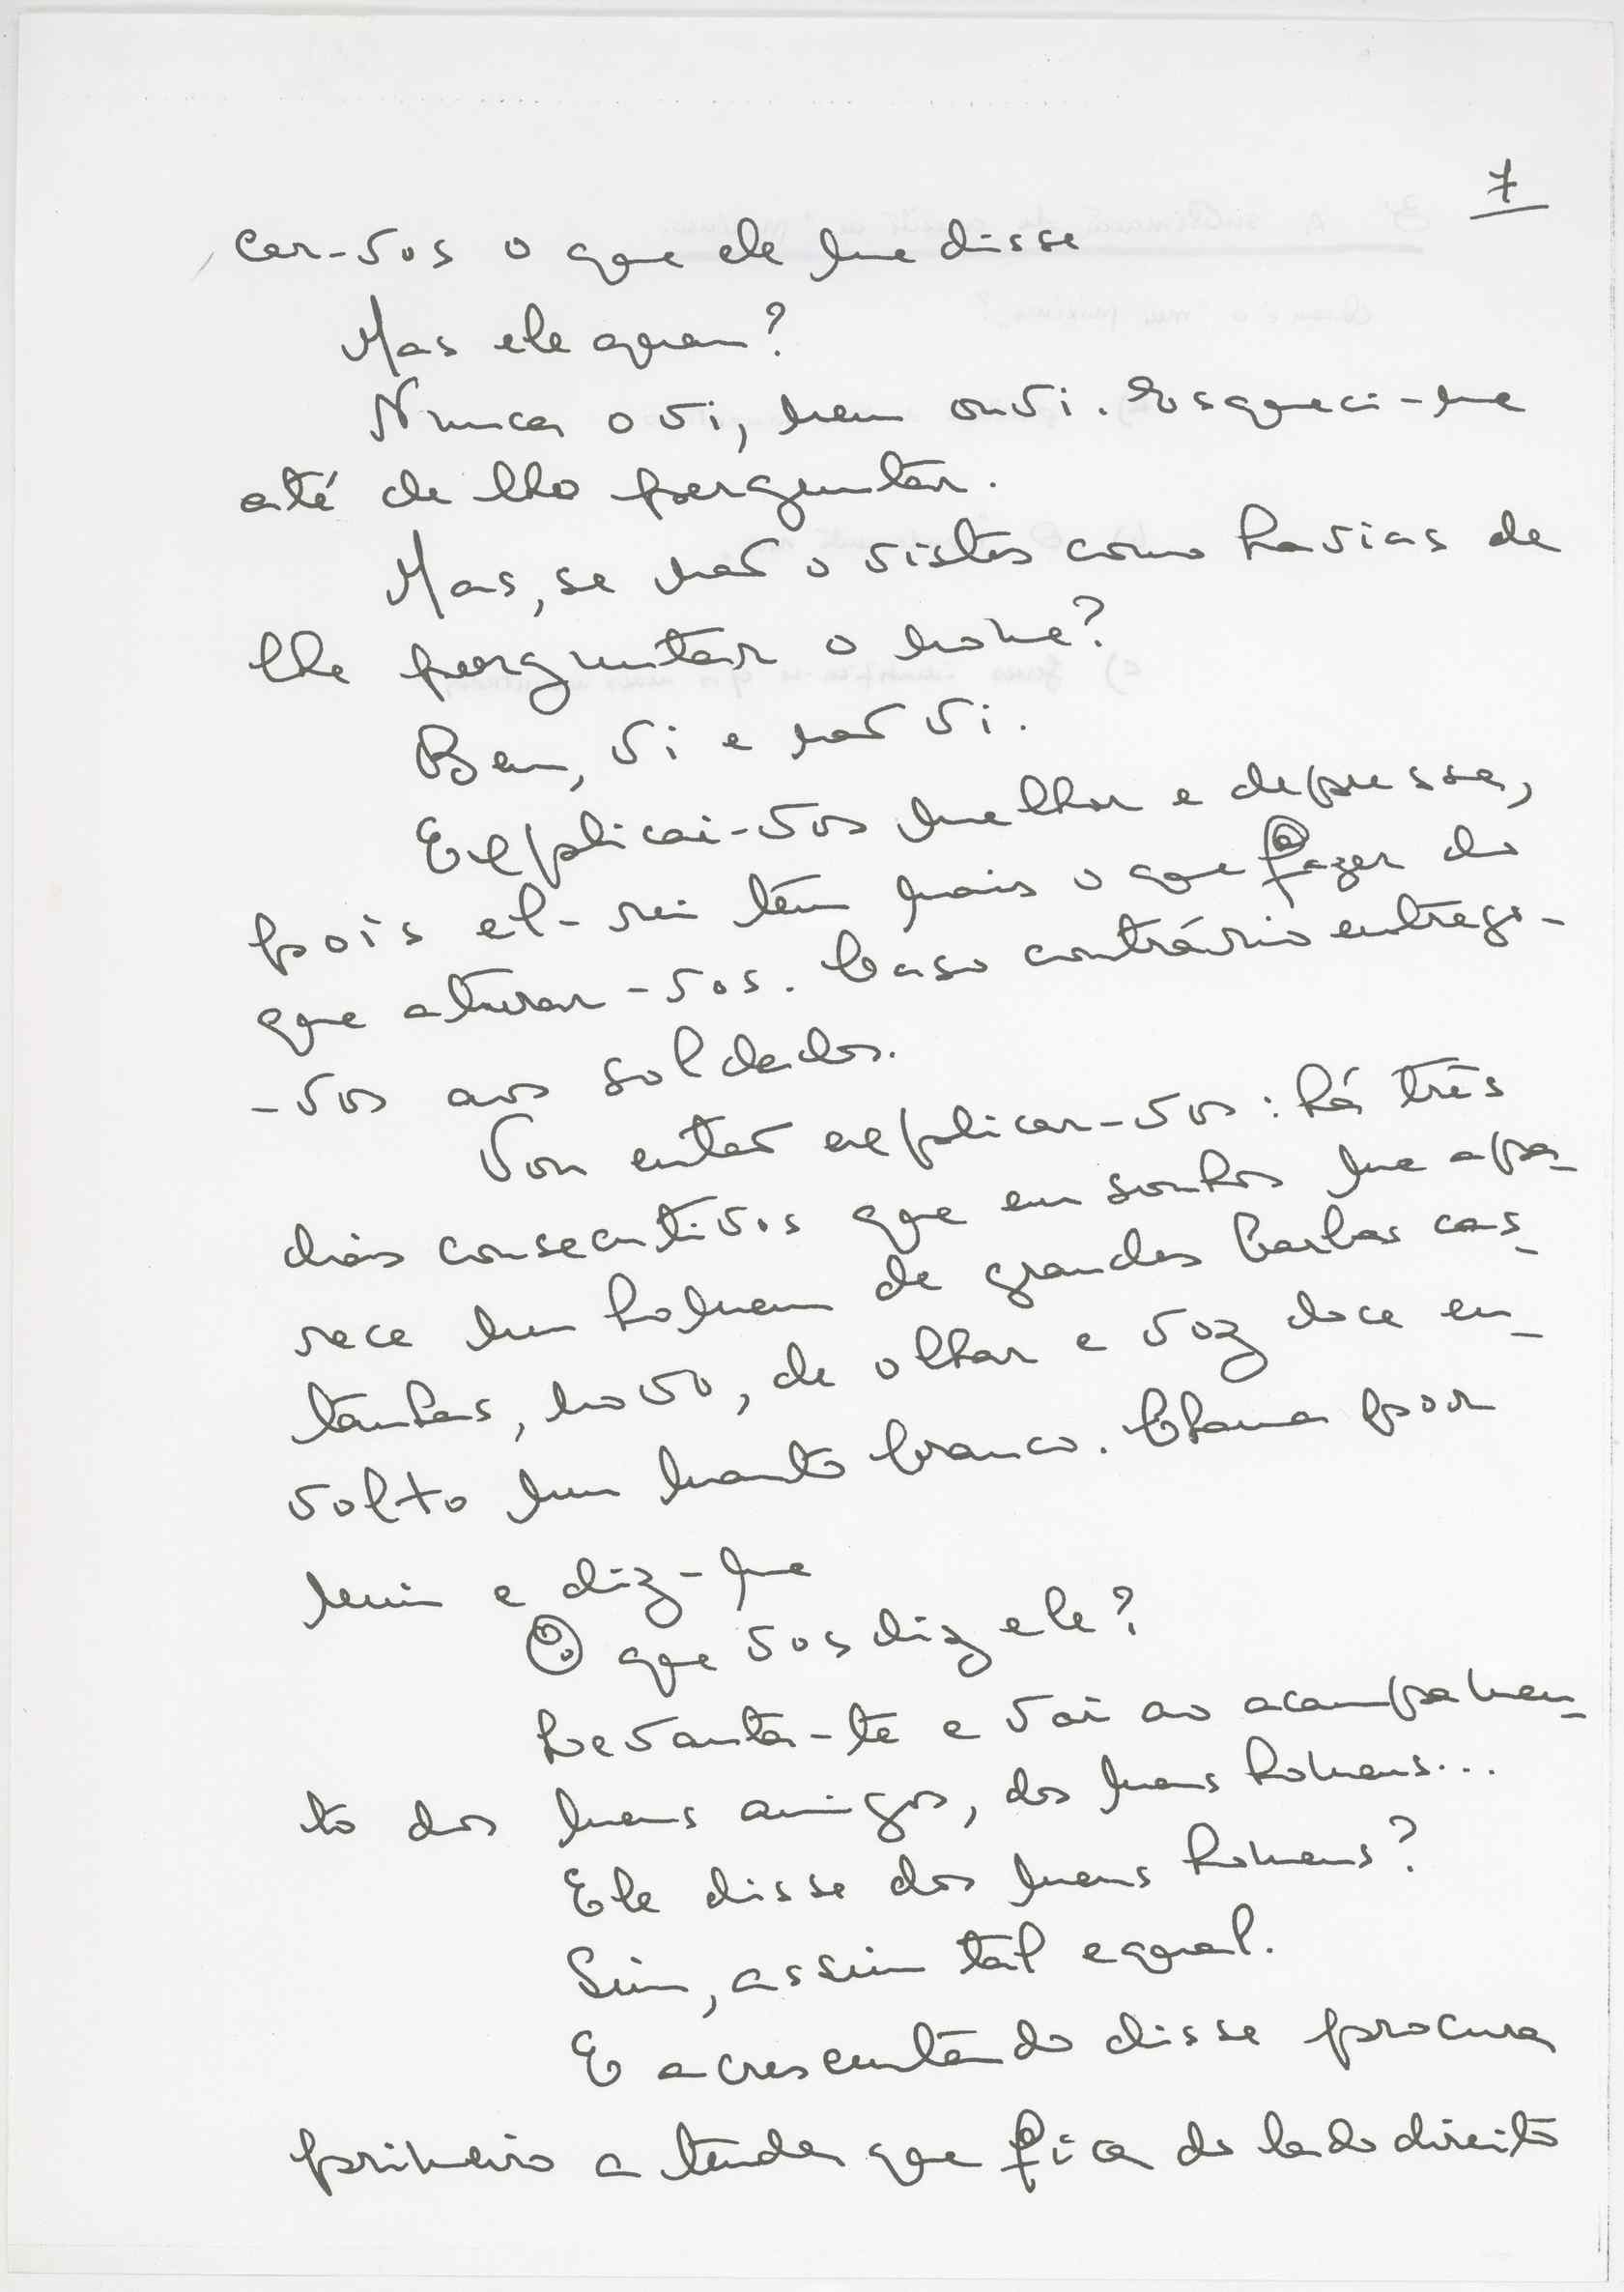 7
cer-vos o que ele me disse
Mas ele quem?
Nunca o vi, nem ouvi. Esqueci-me
até de lho perguntar.
Mas, se não o vistes como havias de
lhe perguntar o nome?
Bem, vi e não vi.
Explicai-vos melhor e depressa,
pois el-rei tem mais o que fazer do
que aturar-vos. Caso contrário entrego-
-vos aos soldados.
Vou então explicar-vos: há três
dias consecutivos que em sonhos me apa-
rece um homem de grandes barbas cas-
tanhas, novo, de olhar e voz doce en-
volto num manto branco. Chama por
mim e diz-me
O que vos diz ele?
Levanta-te e vai ao acampamen-
to dos meus amigos, dos meus homens...
Ele disse dos meus homens?
Sim, assim tal e qual.
E acrescentando disse procura
primeiro a tenda que fica do lado direito